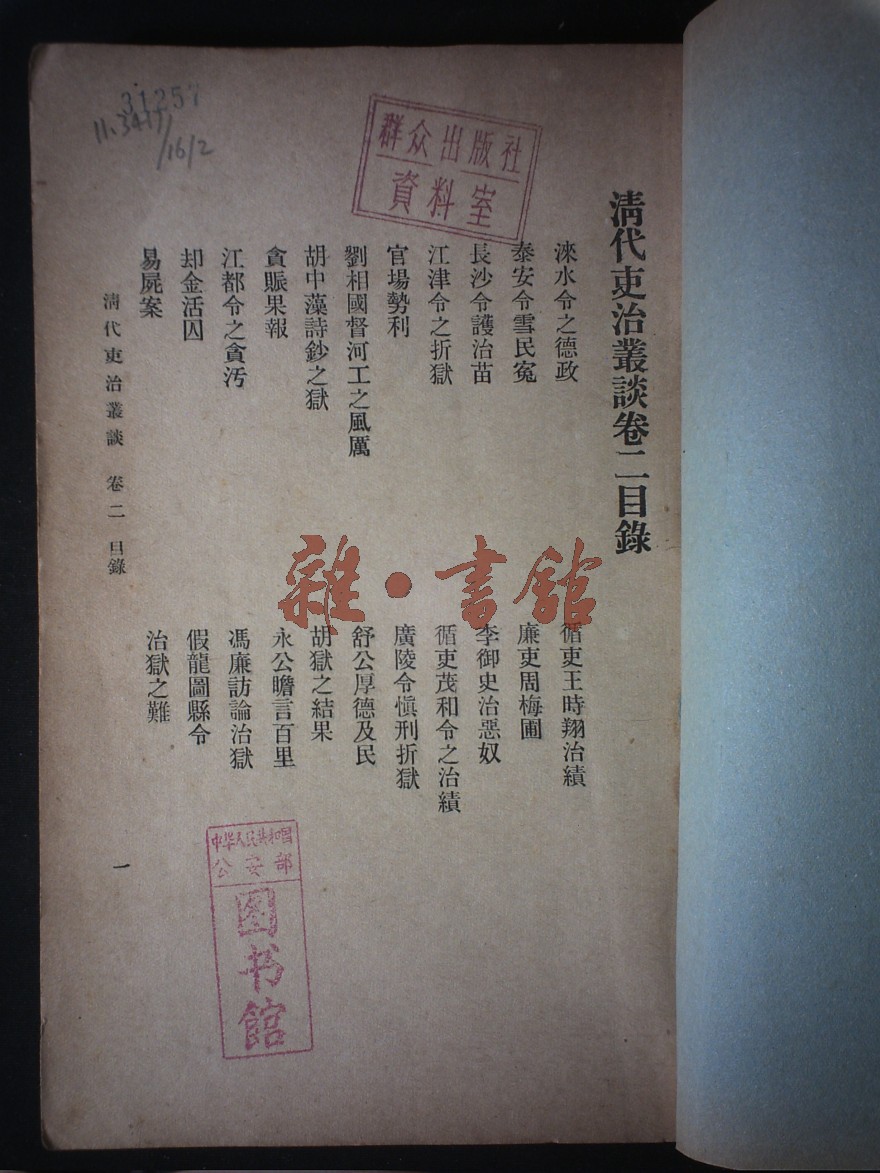 清代吏治叢談卷二目錄
淶水令之德政
循吏王時翔治績
泰安令雪民冤
廉吏周梅圃
長沙令護治苗
李御史治惡奴
江津令之折獄
循吏茂和令之治績
官場勢利
廣陵令慎刑折獄
劉相國督河工之風厲
舒公厚德及民
胡中藻詩鈔之獄
胡獄之結果
貪賑果報
永公瞻言百里
江都令之貪汚
馮廉訪論治獄
却金活囚
假龍圖縣令
易屍案
治獄之難
清代吏治叢談 卷二 目錄
一
31257
11.3417
/16/2
群众出版社
資料室
中华人民共和国
公安部
图书馆
雜·書館